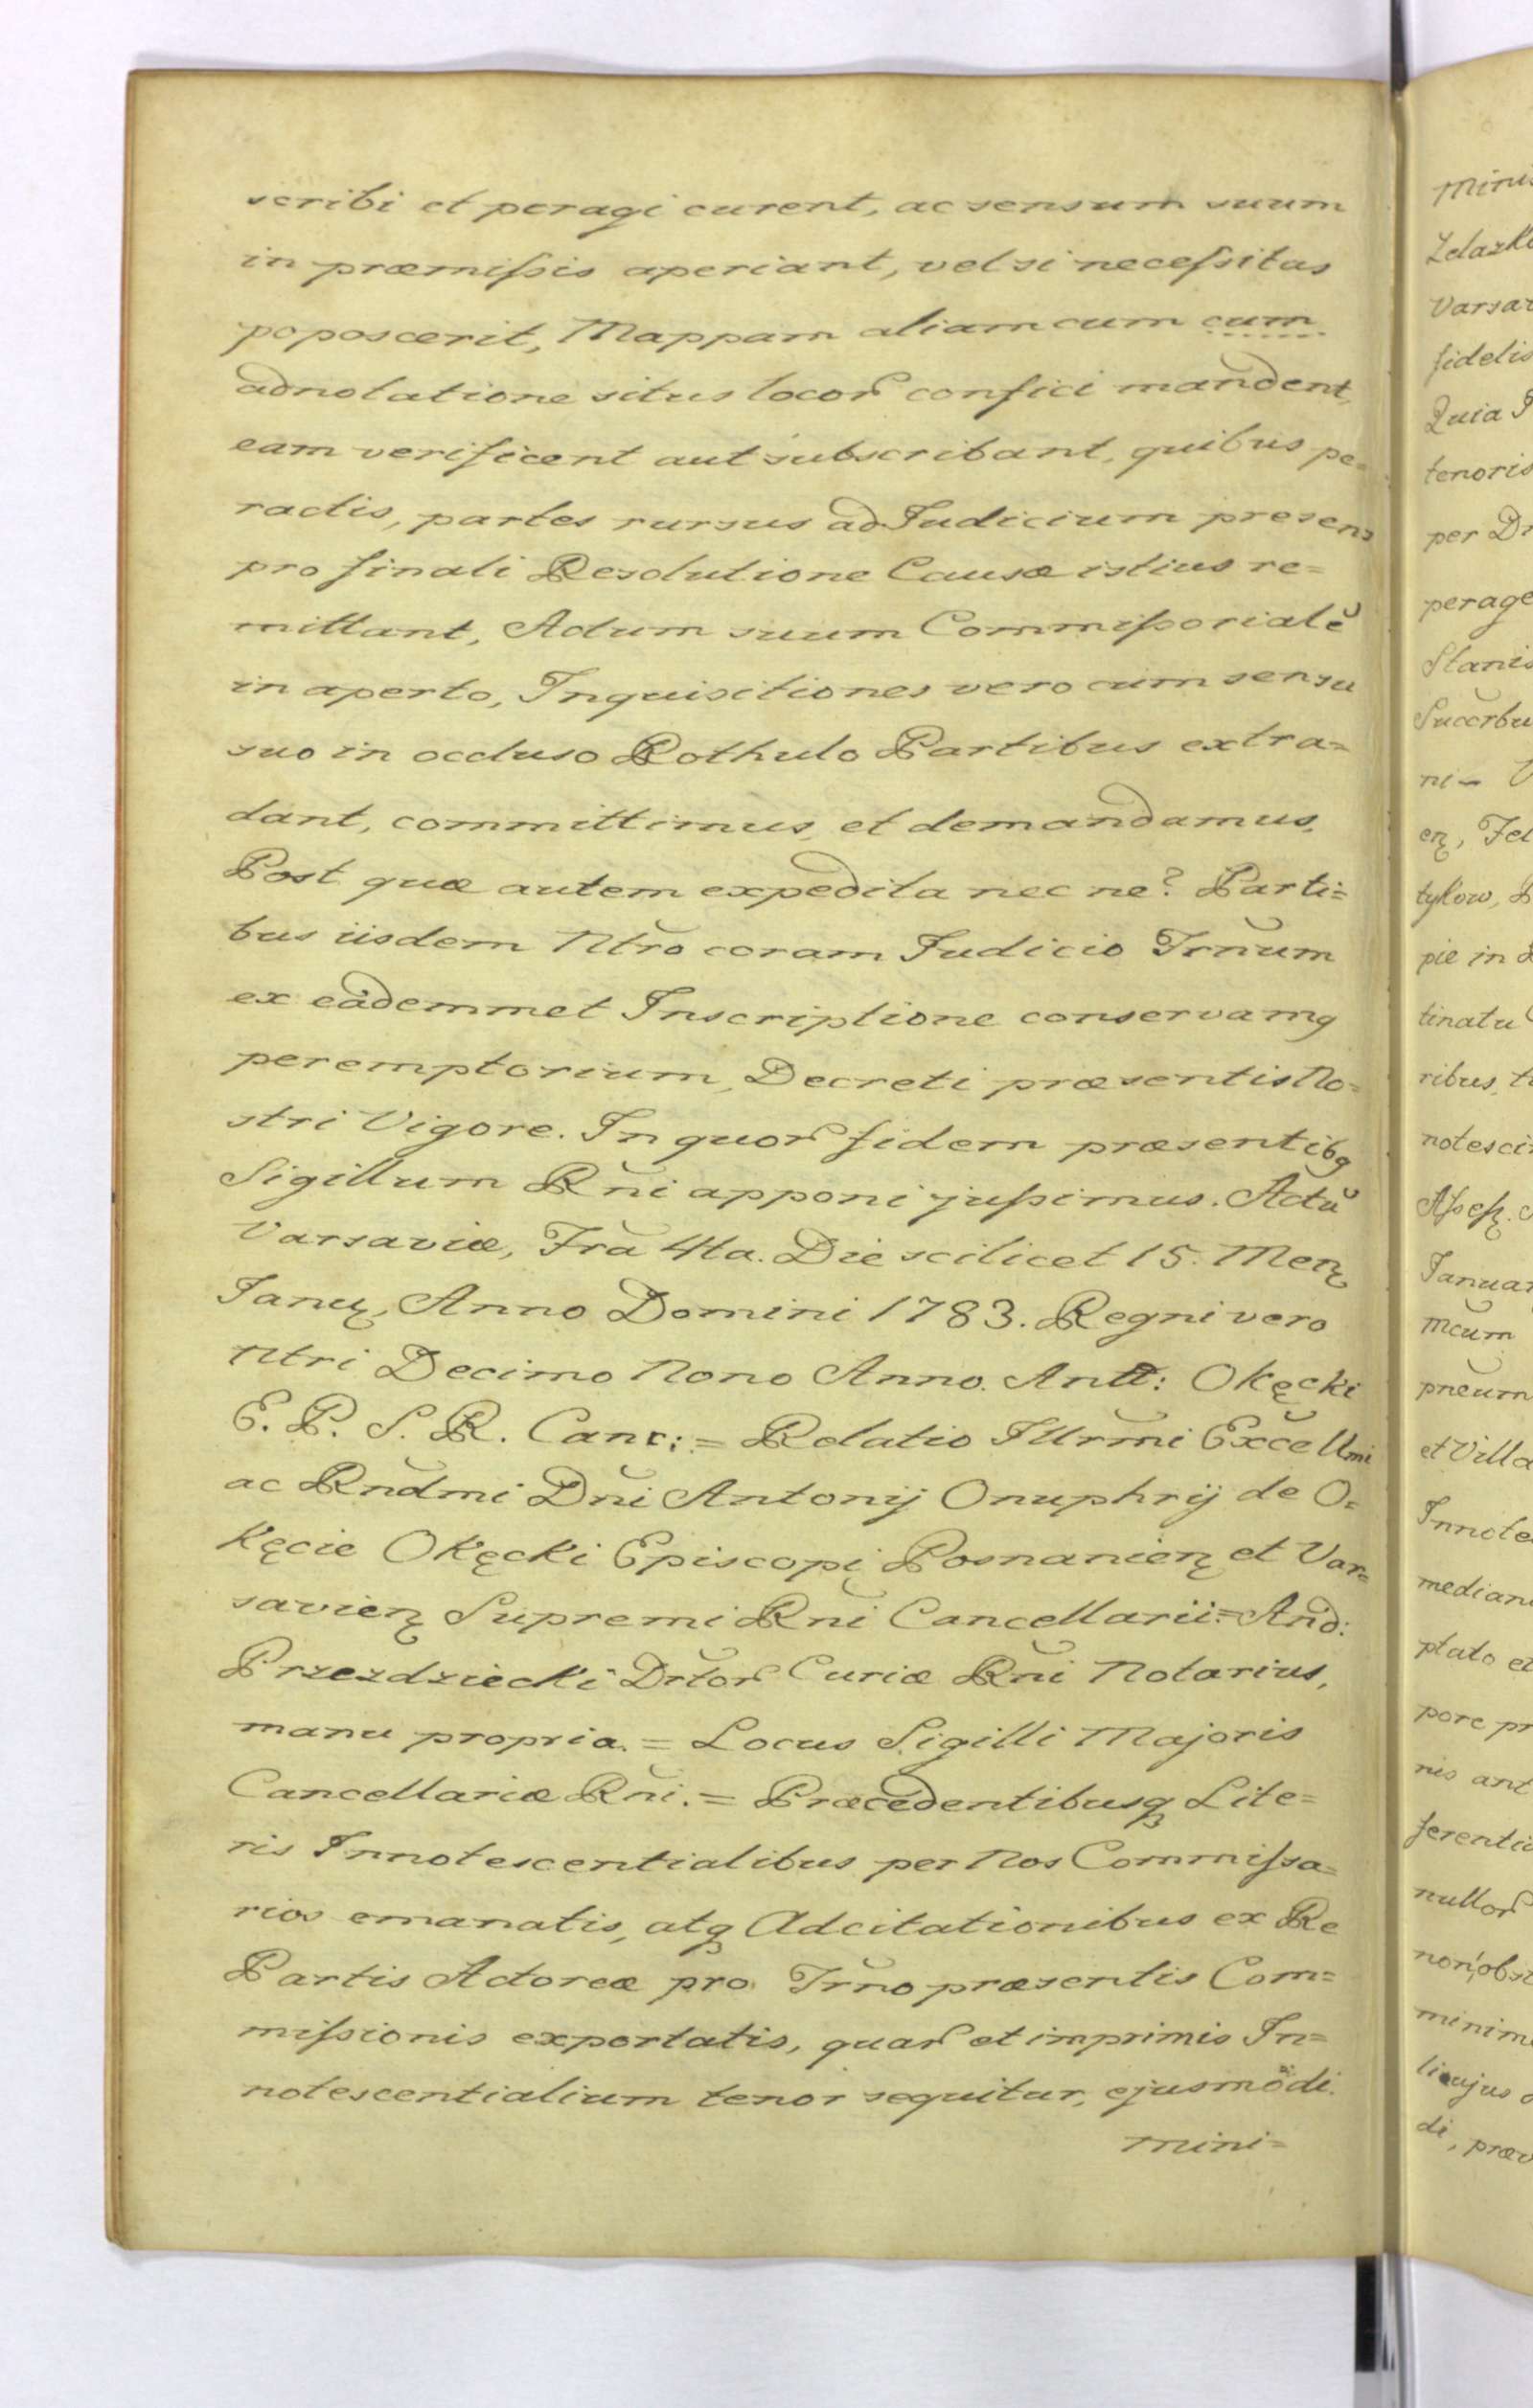 scribi et peragi curent, ac sensum suum
in præmiſsis aperiant, vel si neceſsitas
poposcerit, Mappam aliam cum cum
adnotatione situs locorꝝ confici mandent,
eam verificent aut subscribant, quibus pe=
ractis, partes rursus ad Judicium presens
pro finali Resolutione Causæ istius re=
mittant, Actum suum Commiſsorialē
in aperto, Inquisitiones vero cum sensu
suo in occluso Rothulo Partibus extra=
dant, committimus, et demandamus,
Post quæ autem expedita nec ne? Parti=
bus iisdem Ntrō coram Judicio Trn̄um
ex eâdemmet Inscriptione conservamꝯ
peremptorium, Decreti præsentis No=
stri Vigore. In quorꝝ fidem præsentibꝯ
Sigillum Rn̄i apponi juſsimus. Actū
Varsaviæ, Fr̄a 4ta. Die scilicet 15. Menꝭ
Januꝭ, Anno Domini 1783. Regni vero
Ntri Decimo Nono Anno. Antt: Okęcki
E. P. S. R. Canc: = Relatio Illrm̄i Excēllmi
ac Rnd̄mi Dn̄i Antonij Onuphrij de O=
kęcie Okęcki Episcopi Posnanienꝭ et Var=
savienꝭ Supremi Rn̄i Cancellarii = And:
Przezdziecki Drt̄orꝝ Curiæ Rn̄i Notarius,
manu propria. = Locus Sigilli Majoris
Cancellariæ Rn̄i. = Præcedentibusqꝫ Lite=
ris Innotescentialibus per Nos Commiſsa=
rios emanatis, atqꝫ Adcitationibus ex Re
Partis Actoreæ pro Trn̄o præsentis Com=
miſsionis exportatis, quarꝝ et imprimis In=
notescentialium tenor sequitur, ejusmōdi.
mini=
Zelazk
Varsav
fidelis
Quia
tenoris
per
perage
Stanis
tinatu
ribus
notesci
Januar
et Villa
Innote
median
plato et
pore pr
ferenti
nullorꝝ
minim